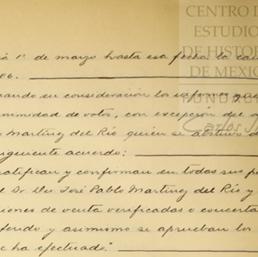 CENTRO D
ESTUDIO
DE HISTOR
DE MEXIC
FUNDAC
Carlos S
1º de mayo hasta esta fecha la can
06.
ando en consideración los informes
nimidad de votos, con excepción del
Martínez del Río quien se abstuvo d
iguiente acuerdo:
ratifican y confirman en todas sus p
el Sr. Dr. Don José Pablo Martínez del Río y
iones de venta verificadas o concerta
fondo y asimismo se aprueban los
e ha efectuado."